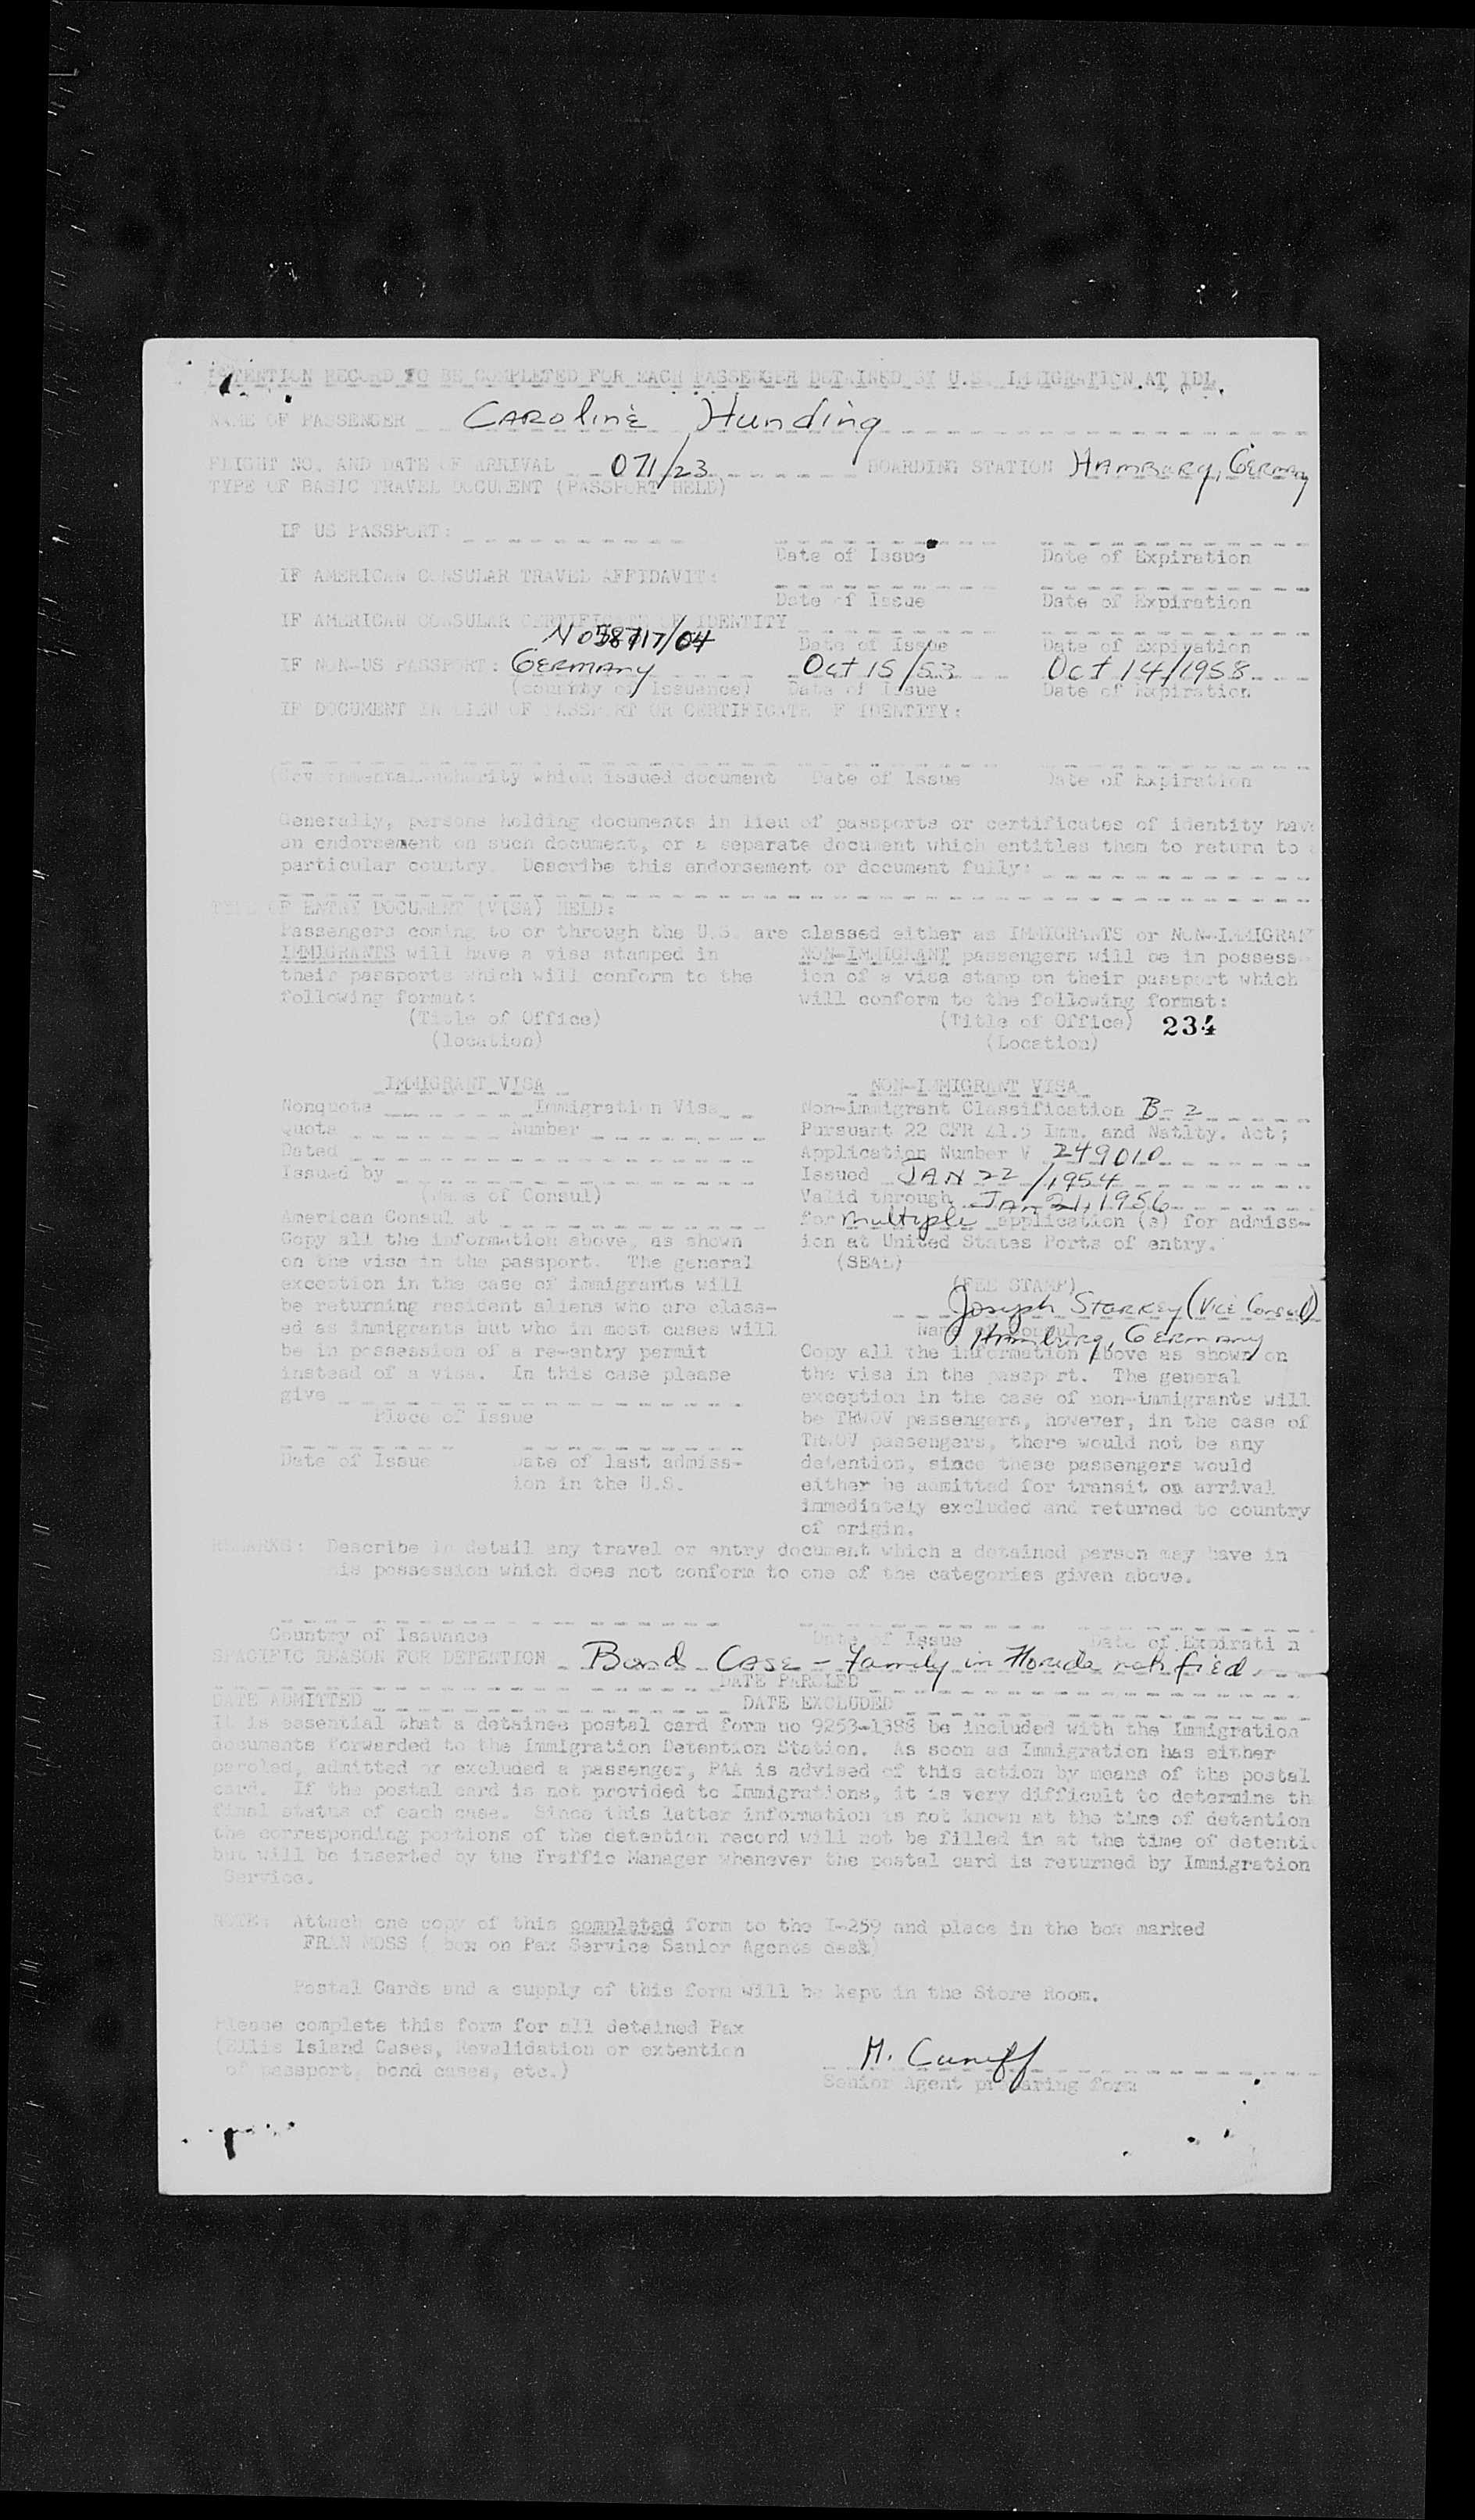 DETENTION RECORD TO BE COMPLETED FOR EACH PASSENGER DETAINED BY U.S. IMMIGRATION AT IDL.
NAME OF PASSENGER CAROLINE Hunding
FLIGHT NO. AND DATE OF ARRIVAL 071/23 BOARDING STATION HAMBURG, GERMANY
TYPE OF BASIC TRAVEL DOCUMENT (PASSPORT HELD)
IF US PASSPORT:
Date of Issue Date of Expiration
IF AMERICAN CONSULAR TRAVEL AFFIDAVIT:
Date of Issue Date of Expiration
IF AMERICAN CONSULAR CERTIFICATE OF IDENTITY
Date of Issue Date of Expiration
IF NON-US PASSPORT: GERMANY Oct 15/53 Oct 14/1958
(country of issuance) Date of Issue Date of Expiration
IF DOCUMENT IN LIEU OF PASSPORT OR CERTIFICATE OF IDENTITY:
(Governmental Authority which issued document Date of Issue Date of Expiration
Generally, persons holding documents in lieu of passports or certificates of identity have
an endorsement on such document, or a separate document which entitles them to return to a
particular country. Describe this endorsement or document fully:
TYPE OF ENTRY DOCUMENT (VISA) HELD:
Passengers coming to or through the U.S. are classed either as IMMIGRANTS or NON-IMMIGRANT
IMMIGRANTS will have a visa stamped in
their passports which will conform to the
following format:
(Title of Office)
(location)
NON-IMMIGRANT passengers will be in possess-
ion of a visa stamp on their passport which
will conform to the following format:
(Title of Office) 234
(Location)
IMMIGRANT VISA
Nonquota Immigration Visa
Quota Number
Dated
Issued by
(Name of Consul)
American Consul at
Copy all the information above, as shown
on the visa in the passport. The general
exception in the case of immigrants will
be returning resident aliens who are class-
ed as immigrants but who in most cases will
be in possession of a re-entry permit
instead of a visa. In this case please
give
Place of Issue
Date of Issue Date of last admiss-
ion in the U.S.
NON-IMMIGRANT VISA
Non-immigrant Classification B-2
Pursuant 22 CFR 41.5 Imm. and Natlty. Act;
Application Number V 249010
Issued JAN 22/1954
Valid through Jan 21, 1956
for multiple application (s) for admiss-
ion at United States Ports of entry.
(SEAL)
(FEE STAMP)
Joseph Starkey (Vice Consul)
Name of Consul
Hamburg, GERMANY
Copy all the information above as shown on
the visa in the passport. The general
exception in the case of non-immigrants will
be TRWOV passengers, however, in the case of
TRWOV passengers, there would not be any
detention, since these passengers would
either be admitted for transit on arrival
immediately excluded and returned to country
of origin.
REMARKS: Describe in detail any travel or entry document which a detained person may have in
his possession which does not conform to one of the categories given above.
Country of Issuance Date of Issue Date of Expirati n
SPACIFIC REASON FOR DETENTION Bond CASE - family in Florida notified.
DATE PAROLED
DATE ADMITTED DATE EXCLUDED
It is essential that a detainee postal card form no 9253-1388 be included with the Immigration
documents forwarded to the Immigration Detention Station. As soon as Immigration has either
paroled, admitted or excluded a passenger, PAA is advised of this action by means of the postal
card. If the postal card is not provided to Immigrations, it is very difficult to determine th
final status of each case. Since this latter information is not known at the time of detention
the corresponding portions of the detention record will not be filled in at the time of detentio
but will be inserted by the Traffic Manager whenever the postal card is returned by Immigration
Service.
NOTE: Attach one copy of this completed form to the I-259 and place in the box marked
FRAN MOSS ( box on Pax Service Senior Agents desk)
Postal Cards and a supply of this form will be kept in the Store Room.
Please complete this form for all detained Pax
(Ellis Island Cases, Revalidation or extention
of passport, bond cases, etc.)
H. Cuniff
Senior Agent preparing form